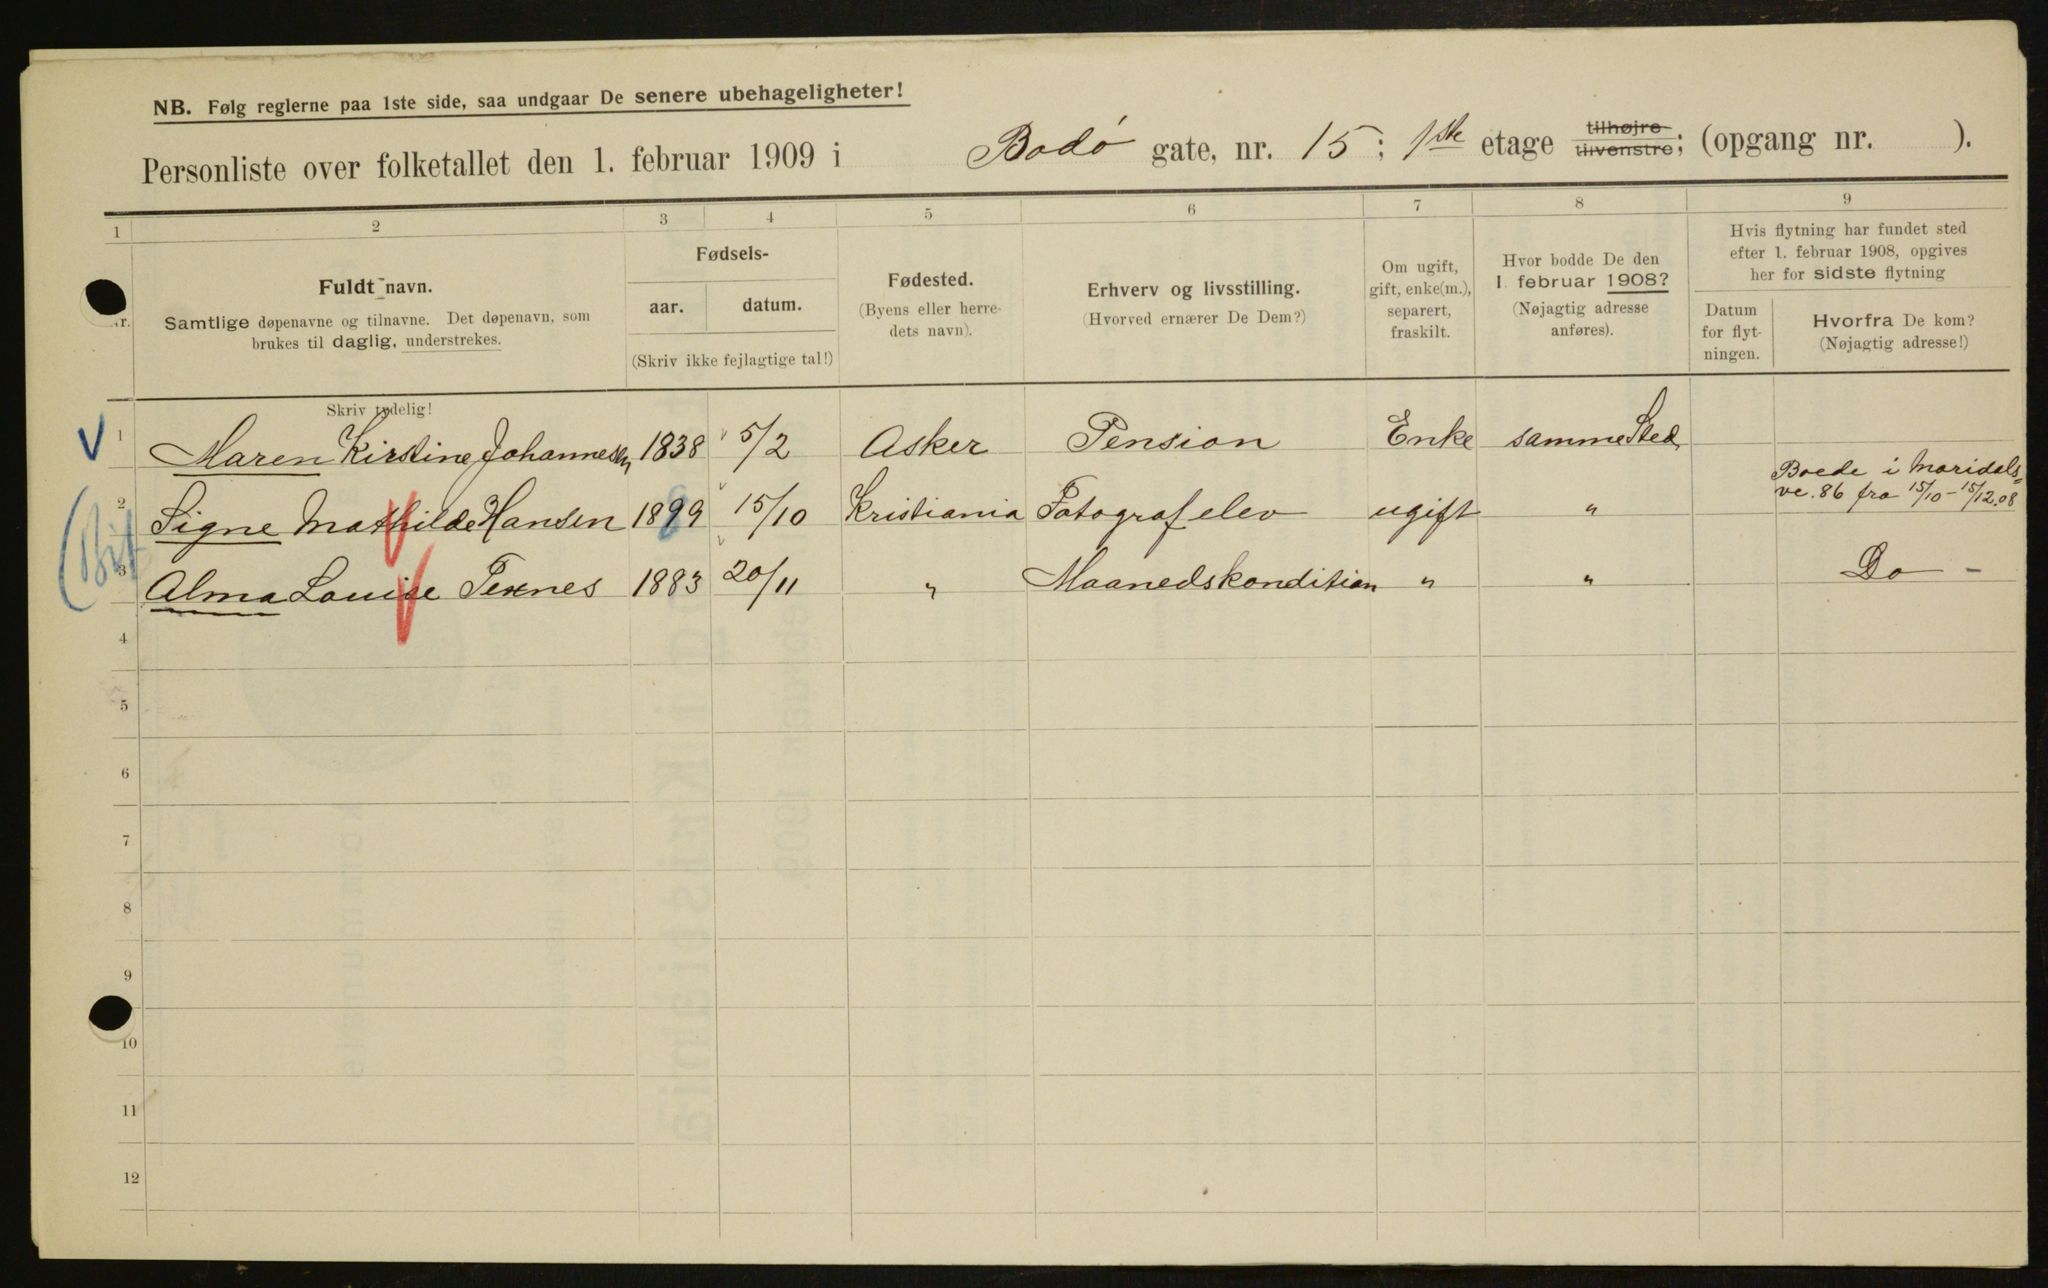 NB. Følg reglerne paa 1ste side, saa undgaar De senere ubehageligheter!
Personliste over folketallet den 1. februar 1909 i Bodø gate, nr. 15; 1ste etage tilhøjre tilvenstre; (opgang nr. ).
1 2 3 4 5 6 7 8 9
Nr.
Fuldt navn.
Samtlige døpenavne og tilnavne. Det døpenavn, som
brukes til daglig, understrekes.
Skriv tydelig!
Fødsels-
aar. datum.
(Skriv ikke fejlagtige tal!)
Fødested.
(Byens eller herre-
dets navn).
Erhverv og livsstilling.
(Hvorved ernærer De Dem?)
Om ugift,
gift, enke(m.),
separert,
fraskilt.
Hvor bodde De den
1. februar 1908?
(Nøjagtig adresse
anføres).
Hvis flytning har fundet sted
efter 1. februar 1908, opgives
her for sidste flytning
Datum
for flyt-
ningen.
Hvorfra De kom?
(Nøjagtig adresse!)
1 Maren Kirstine Johannesen 1838 5/2 Asker Pension Enke samme Sted
2 Signe Mathilde Hansen 1899 15/10 Kristiania Fotografelev ugift " Boede i Maridals=
ve. 86 fra 15/10 - 15/12.08
3 Alma Louise 1883 20/11 " Maanedskondition " " Do -
4
5
6
7
8
9
10
11
12